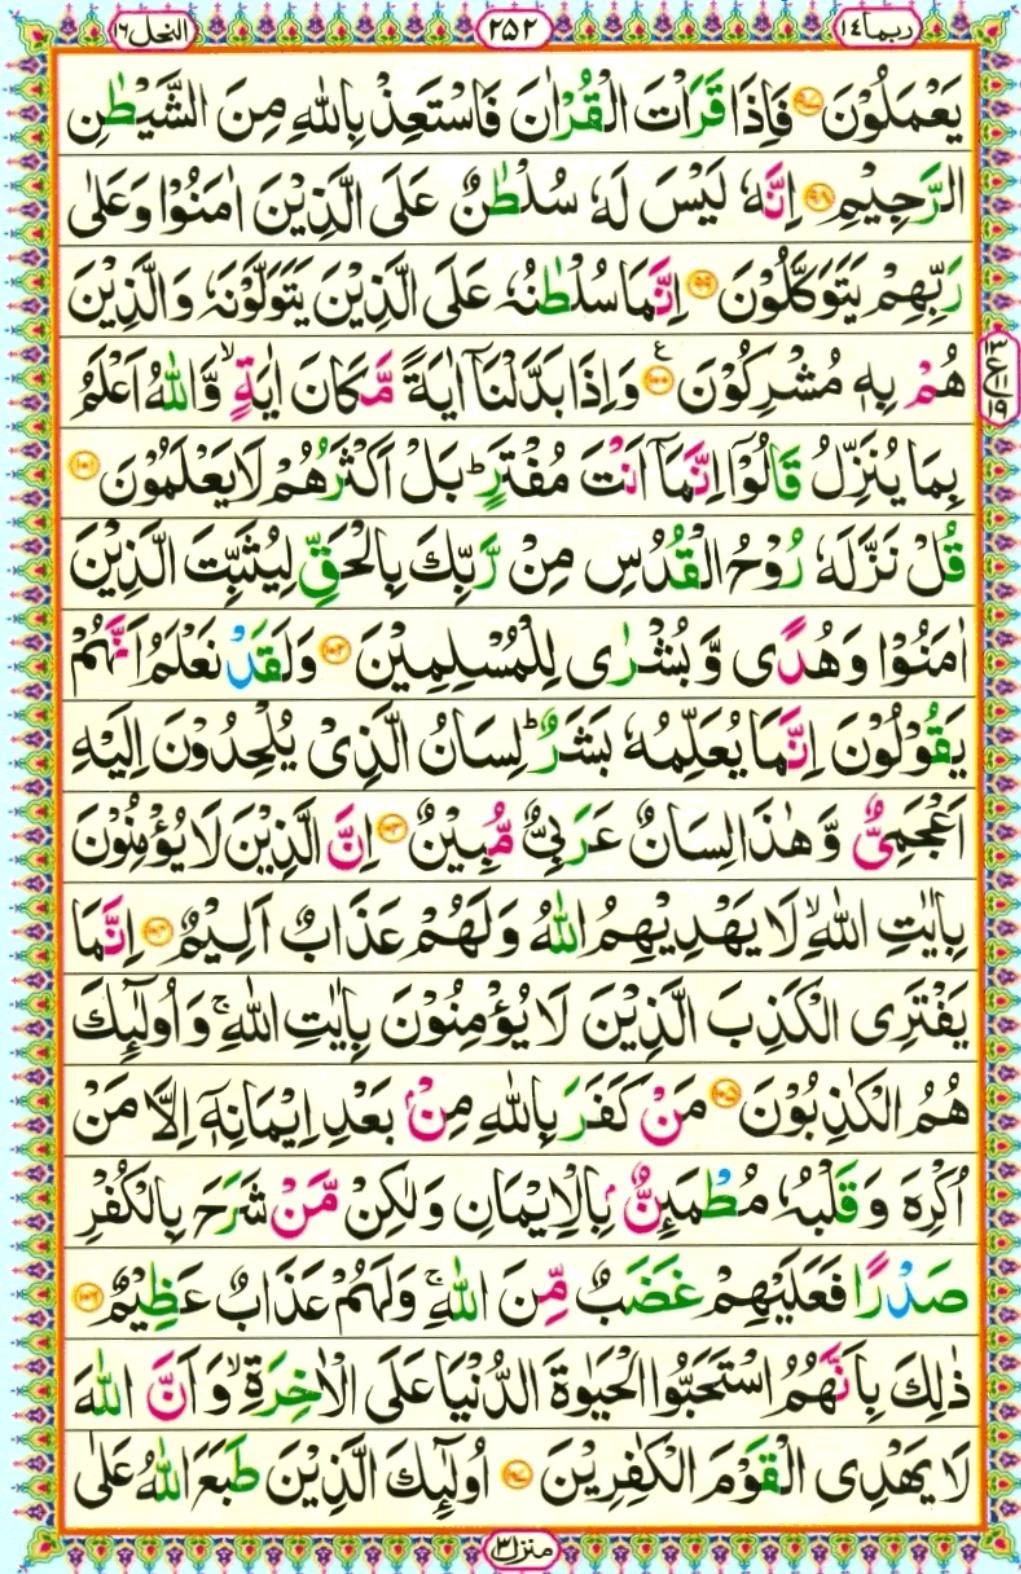 ربما ١٤
٢٥٢
النحل ١٦
يَعْمَلُوْنَ ﴿۹۷﴾ فَاِذَا قَرَاْتَ الْقُرْاٰنَ فَاسْتَعِذْ بِاللّٰهِ مِنَ الشَّيْطٰنِ
الرَّجِيْمِ ﴿۹۸﴾ اِنَّهٗ لَيْسَ لَهٗ سُلْطٰنٌ عَلَى الَّذِيْنَ اٰمَنُوْا وَعَلٰى
رَبِّهِمْ يَتَوَكَّلُوْنَ ﴿۹۹﴾ اِنَّمَا سُلْطٰنُهٗ عَلَى الَّذِيْنَ يَتَوَلَّوْنَهٗ وَالَّذِيْنَ
هُمْ بِهٖ مُشْرِكُوْنَ ﴿۱۰۰﴾ۧ وَاِذَا بَدَّلْنَاۤ اٰيَةً مَّكَانَ اٰيَةٍ ۙ وَّاللّٰهُ اَعْلَمُ
بِمَا يُنَزِّلُ قَالُوْۤا اِنَّمَاۤ اَنْتَ مُفْتَرٍ ؕ بَلْ اَكْثَرُهُمْ لَا يَعْلَمُوْنَ ﴿۱۰۱﴾
قُلْ نَزَّلَهٗ رُوْحُ الْقُدُسِ مِنْ رَّبِّكَ بِالْحَقِّ لِيُثَبِّتَ الَّذِيْنَ
اٰمَنُوْا وَهُدًى وَّبُشْرٰى لِلْمُسْلِمِيْنَ ﴿۱۰۲﴾ وَلَقَدْ نَعْلَمُ اَنَّهُمْ
يَقُوْلُوْنَ اِنَّمَا يُعَلِّمُهٗ بَشَرٌ ؕ لِسَانُ الَّذِيْ يُلْحِدُوْنَ اِلَيْهِ
اَعْجَمِيٌّ وَّهٰذَا لِسَانٌ عَرَبِيٌّ مُّبِيْنٌ ﴿۱۰۳﴾ اِنَّ الَّذِيْنَ لَا يُؤْمِنُوْنَ
بِاٰيٰتِ اللّٰهِ ۙ لَا يَهْدِيْهِمُ اللّٰهُ وَلَهُمْ عَذَابٌ اَلِيْمٌ ﴿۱۰۴﴾ اِنَّمَا
يَفْتَرِى الْكَذِبَ الَّذِيْنَ لَا يُؤْمِنُوْنَ بِاٰيٰتِ اللّٰهِ ۚ وَاُولٰٓئِكَ
هُمُ الْكٰذِبُوْنَ ﴿۱۰۵﴾ مَنْ كَفَرَ بِاللّٰهِ مِنْۢ بَعْدِ اِيْمَانِهٖۤ اِلَّا مَنْ
اُكْرِهَ وَقَلْبُهٗ مُطْمَىِٕنٌّۢ بِالْاِيْمَانِ وَلٰكِنْ مَّنْ شَرَحَ بِالْكُفْرِ
صَدْرًا فَعَلَيْهِمْ غَضَبٌ مِّنَ اللّٰهِ ۚ وَلَهُمْ عَذَابٌ عَظِيْمٌ ﴿۱۰۶﴾
ذٰلِكَ بِاَنَّهُمُ اسْتَحَبُّوا الْحَيٰوةَ الدُّنْيَا عَلَى الْاٰخِرَةِ ۙ وَاَنَّ اللّٰهَ
لَا يَهْدِى الْقَوْمَ الْكٰفِرِيْنَ ﴿۱۰۷﴾ اُولٰٓئِكَ الَّذِيْنَ طَبَعَ اللّٰهُ عَلٰى
۱۳
ع۱۱
۱۹
منزل ۳